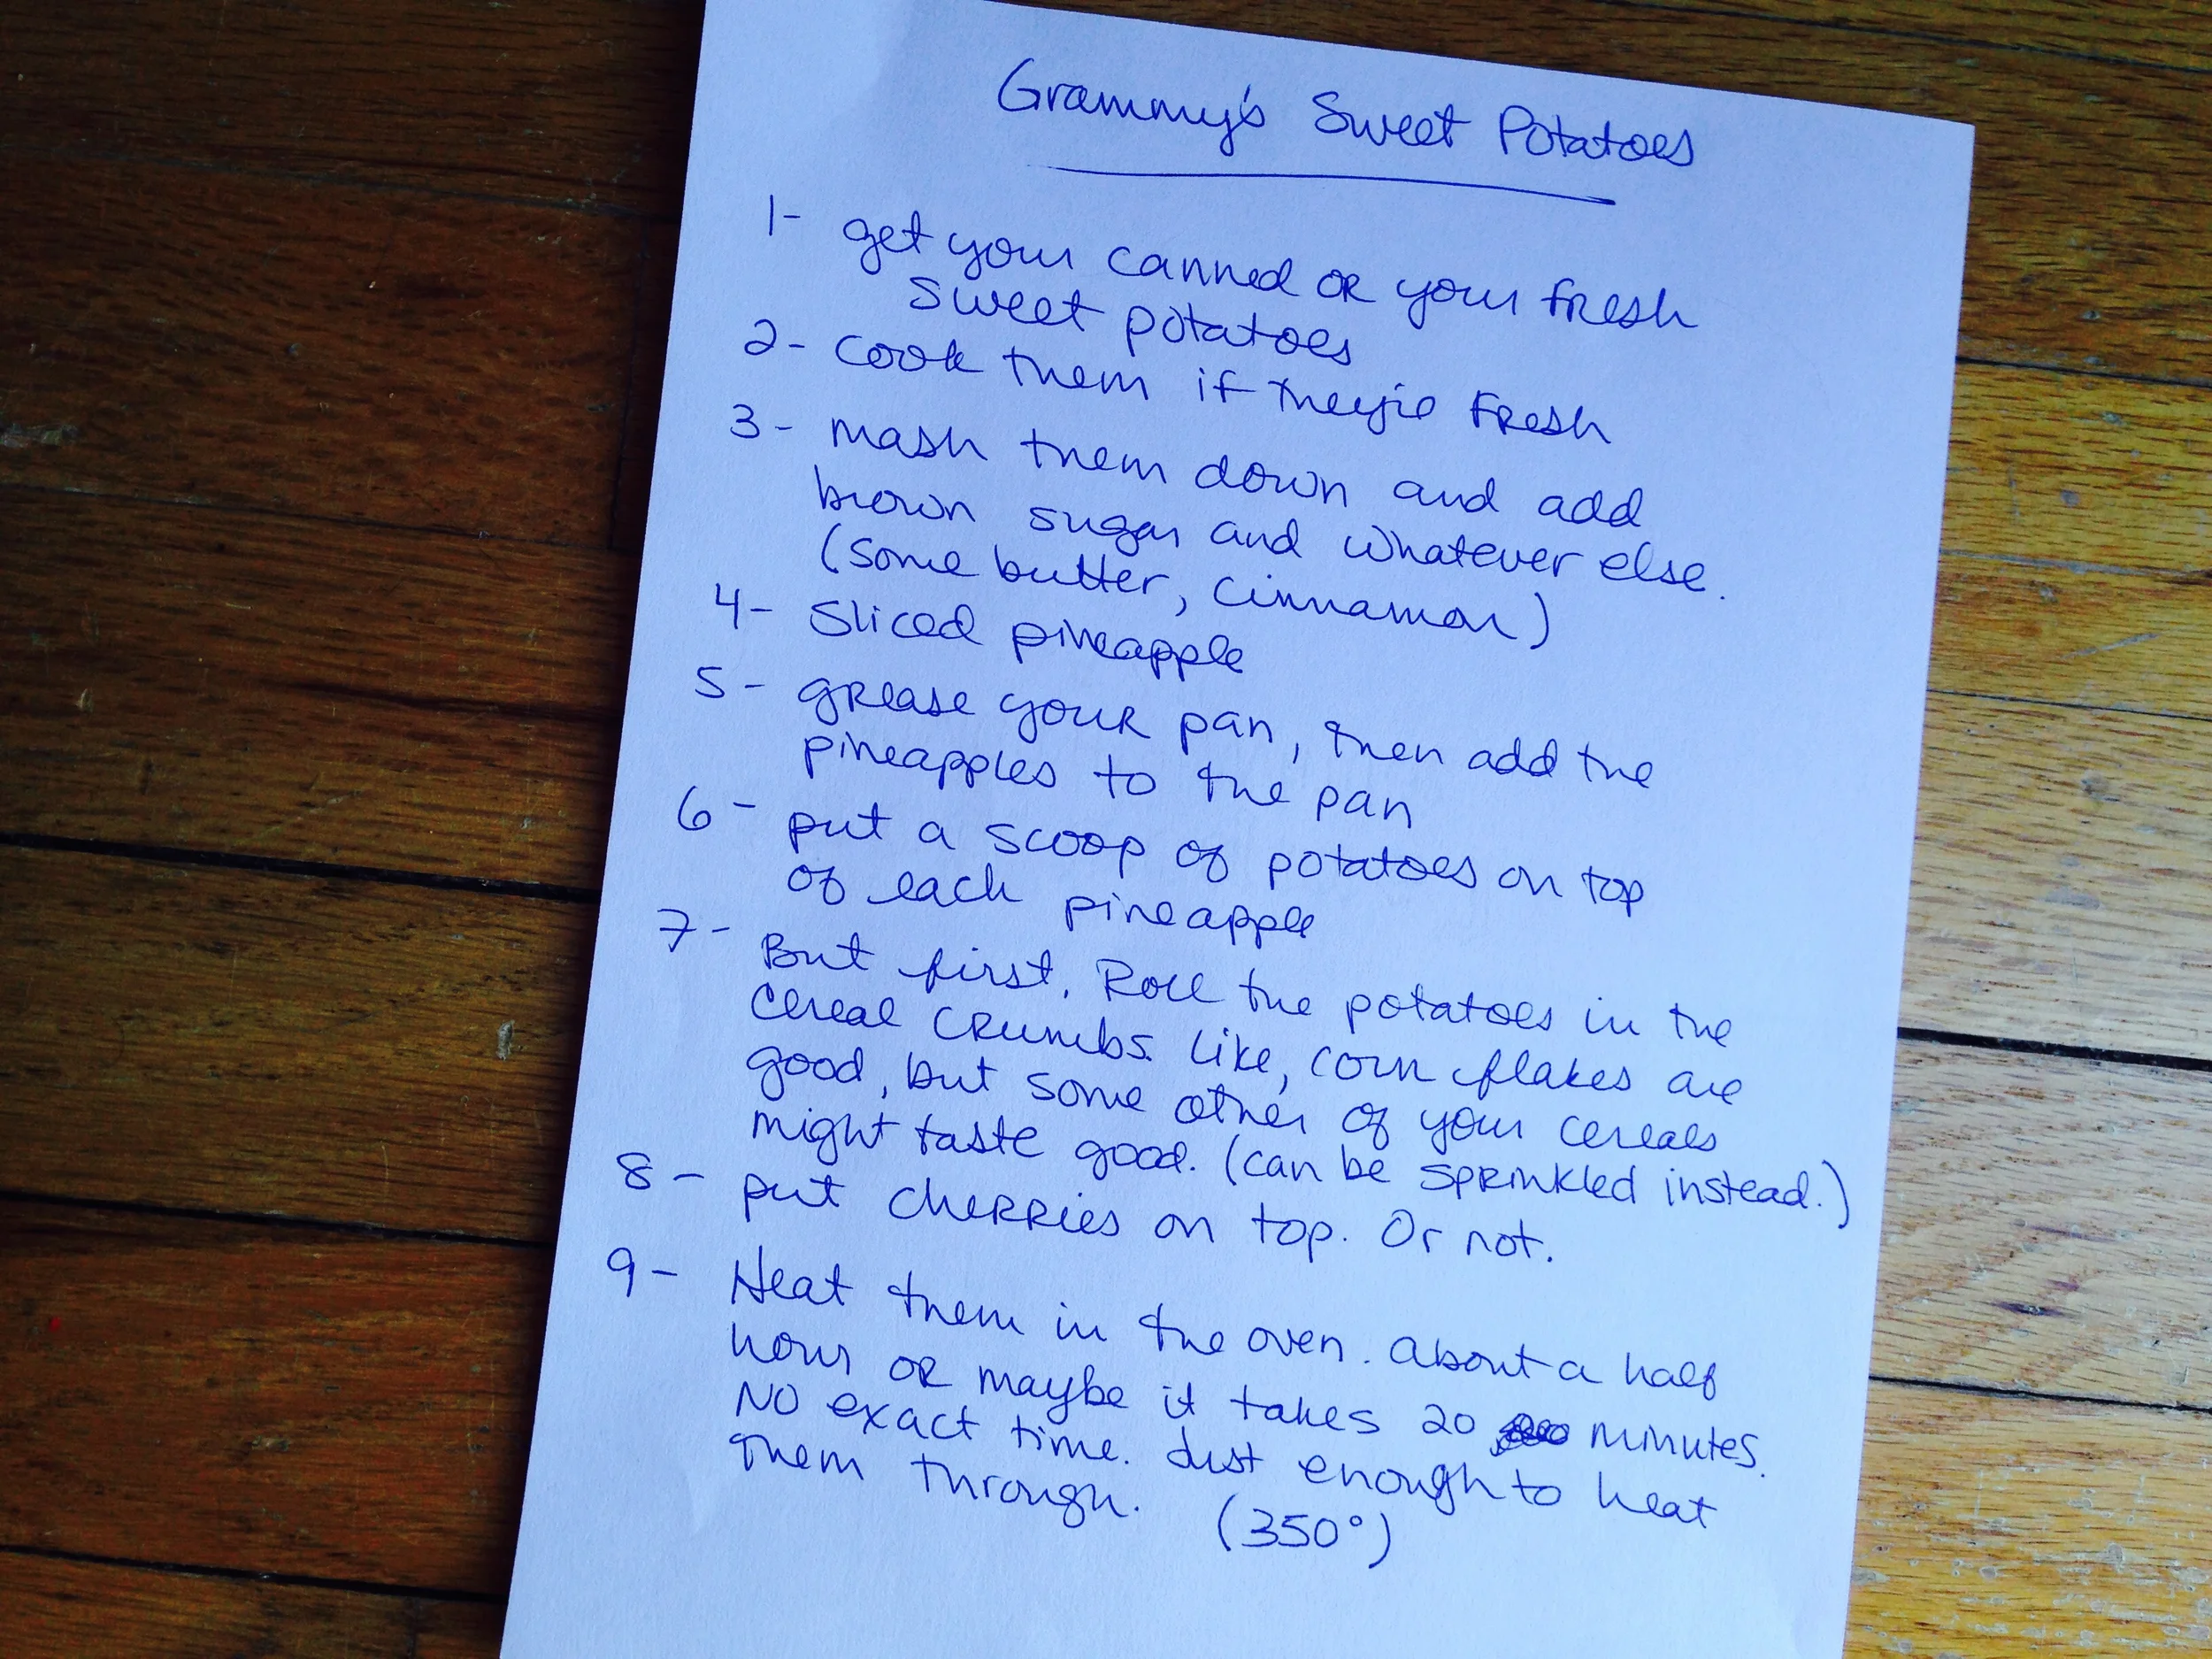 Grammy's Sweet Potatoes
1- get your canned or your fresh
sweet potatoes
2- cook them if they're fresh
3- mash them down and add
brown sugar and whatever else.
(some butter, cinnamon)
4- Sliced pineapple
5- grease your pan, then add the
pineapples to the pan
6- put a scoop of potatoes on top
of each pineapple
7- But first, Roll the potatoes in the
cereal crumbs. Like, corn flakes are
good, but some other of your cereals
might taste good. (can be sprinkled instead.)
8- put cherries on top. Or not.
9- Heat them in the oven. About a half
hour or maybe it takes 20 minutes.
No exact time. Just enough to heat
them through. (350°)